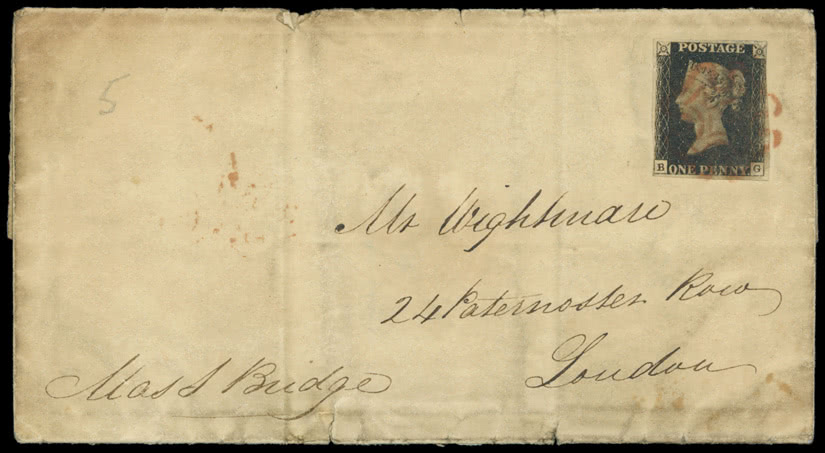 5
POSTAGE
B G
ONE PENNY
Mr Wightman
24 Paternoster Row
London
Bridge